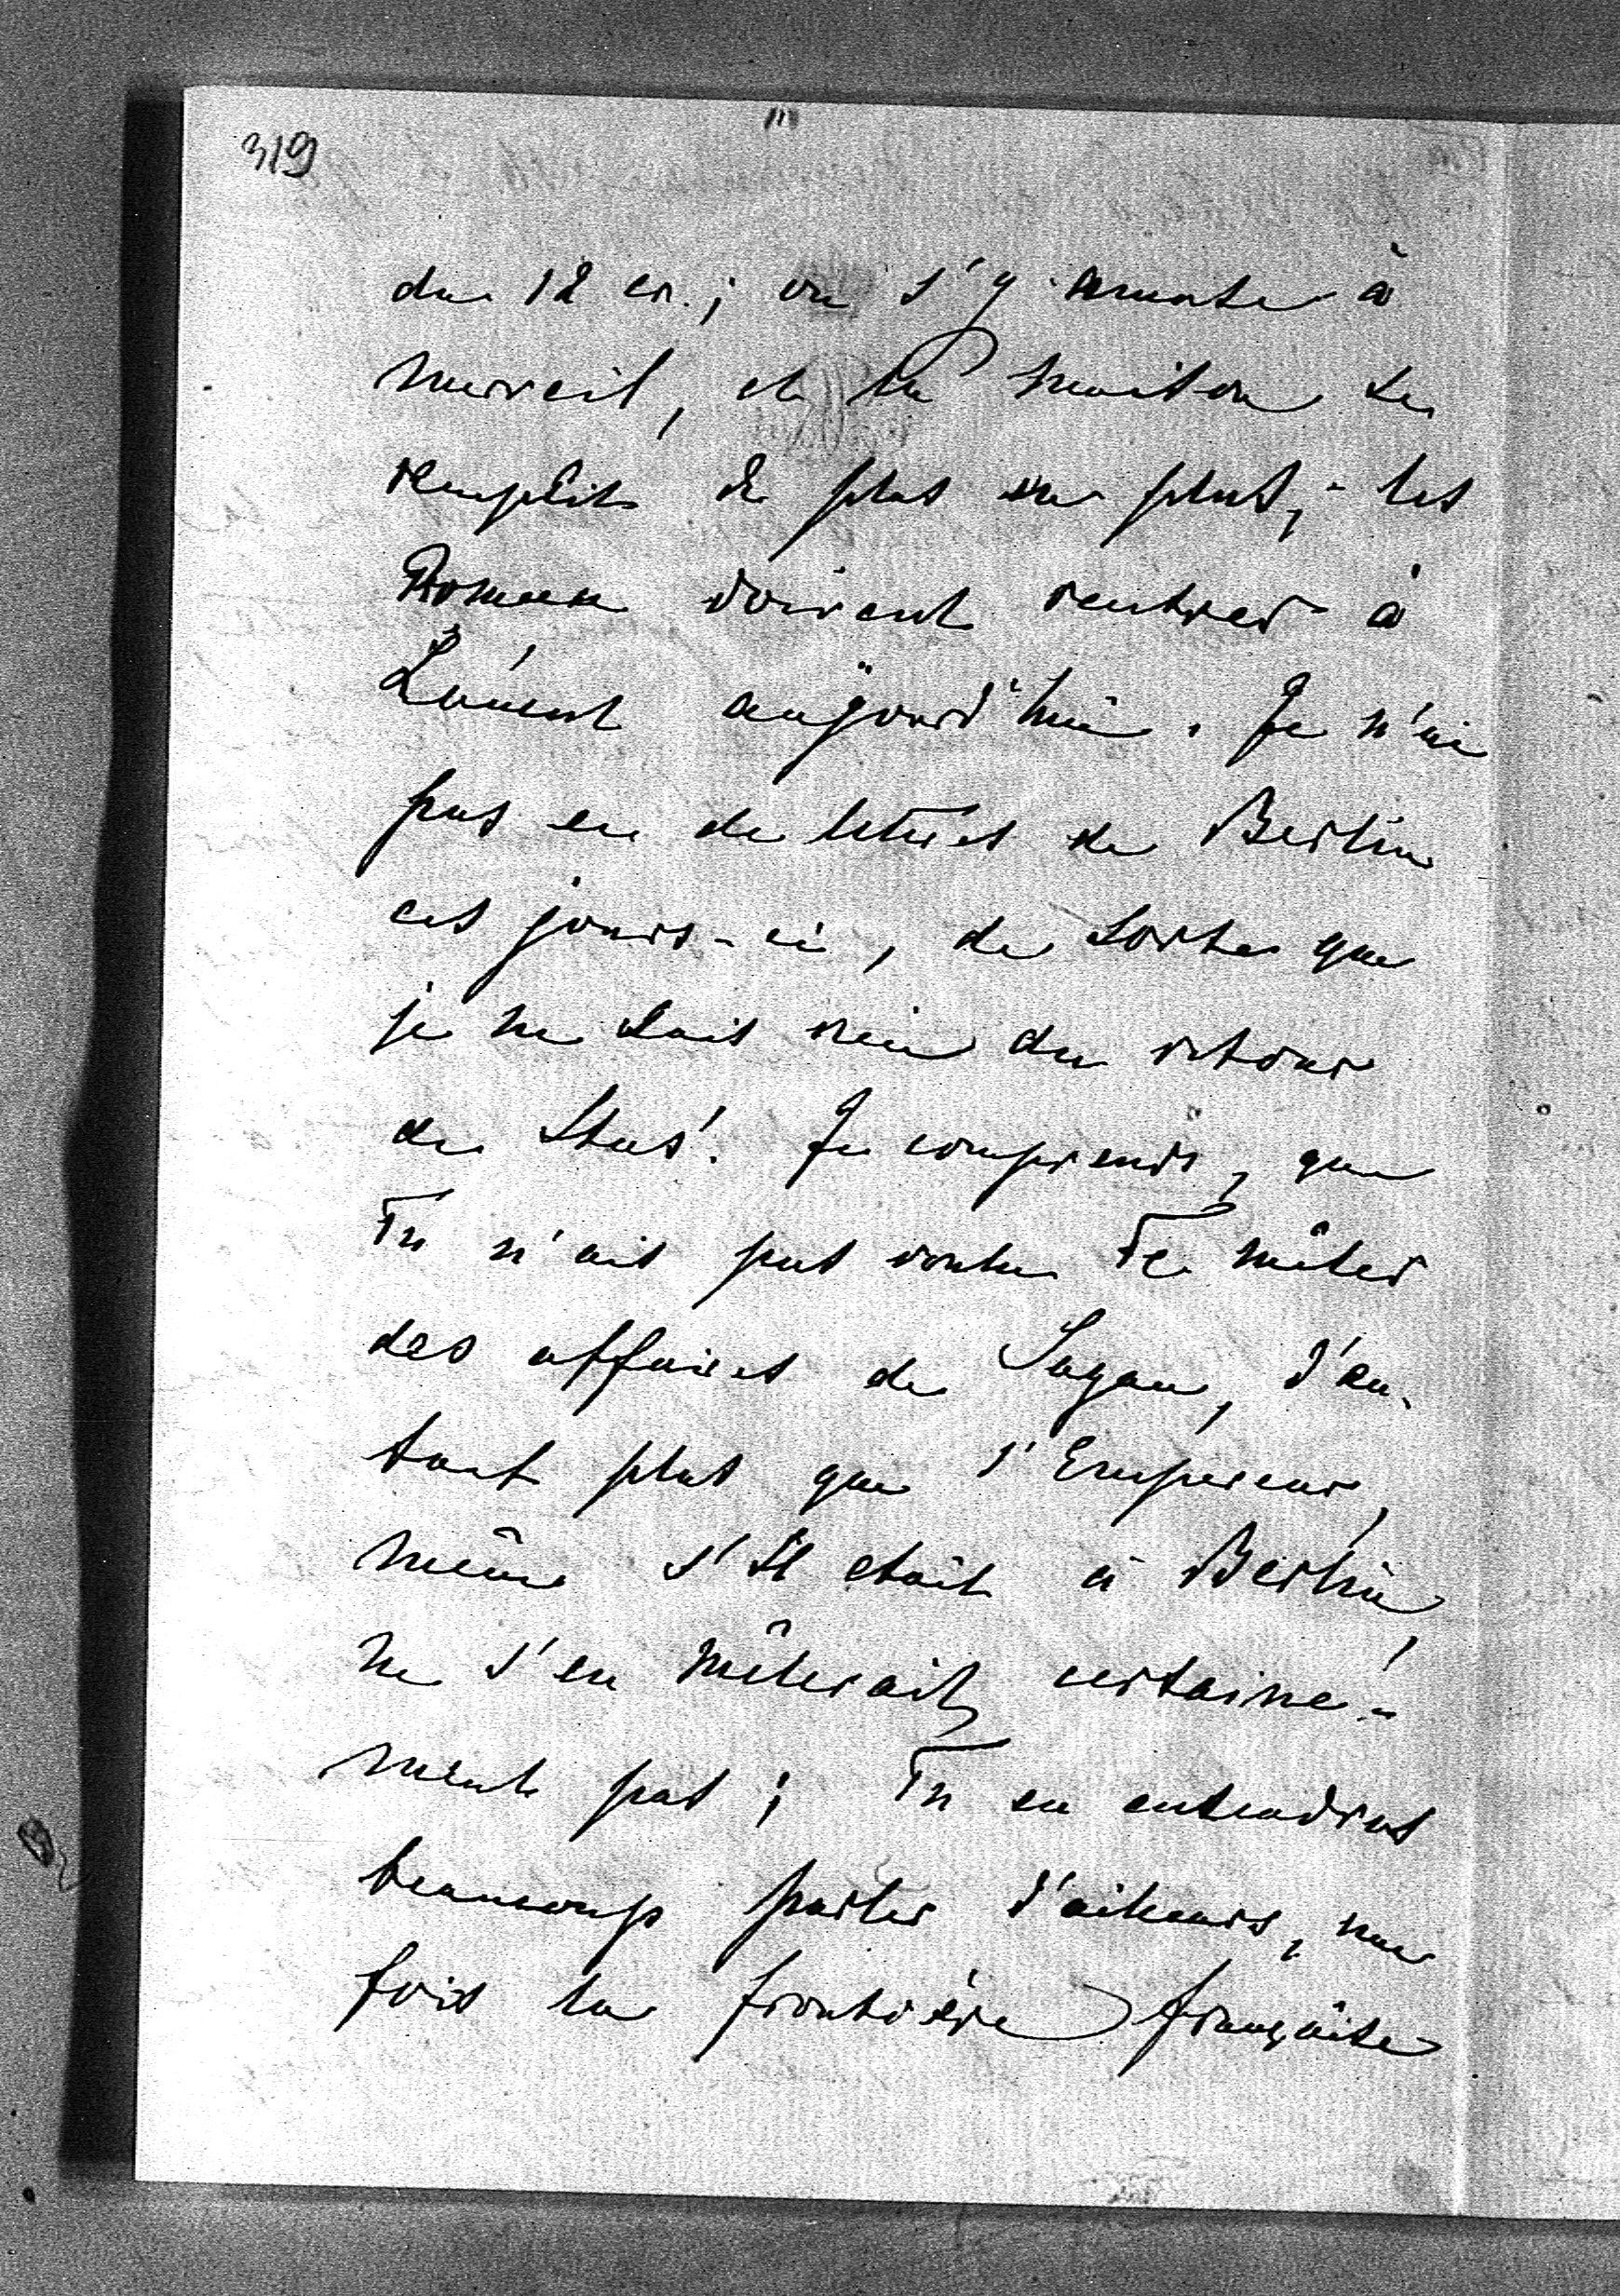 319
du 12 cr.; on s'y amuse à
merveil, et la maison se
remplit de plus en plus; - les
Roman doivent rentrer à
Láncut aujourd'hui. Je n'ai
pas eu de lettres de Berlin
ces jours-ci, de sorte que
je ne sais rien du retour
de Stas'. Je comprends, que
Tu n'ais pas voulu Te mêler
des affaires de Sagan, d'au-
tant plus que l'Empereur,
même s'Il etait à Berlin,
ne s'en mêlerait certaine-
ment pas; Tu en entendras
beaucoup parler d'ailleurs, une
fois la frontière française